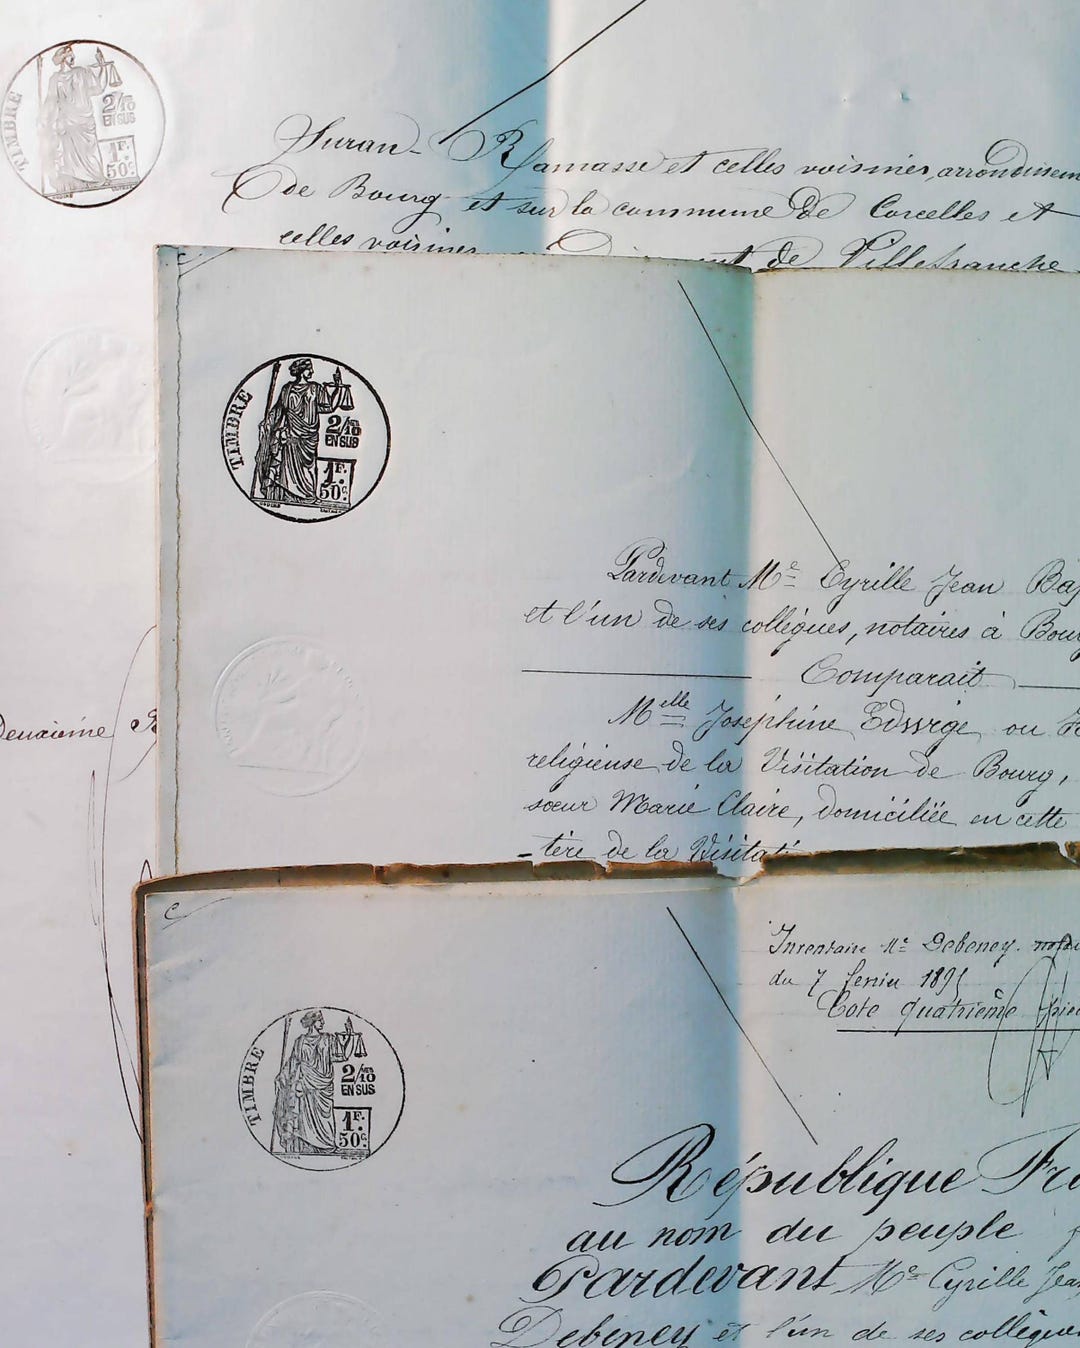 TIMBRE
2/10
EN SUS
1F.
50c.
Suran - Ramasse et celles voisines, arrondissem
de Bourg et sur la commune de Corcelles et
celles voisines de Villefranche
TIMBRE
2/10
EN SUS
1F.
50c.
Pardevant Me Cyrille Jean Bap
et l'un de ses collègues, notaires à Bourg
Comparait
Melle Joséphine Edwige ou
religieuse de la Visitation de Bourg,
sœur Marie Claire, domiciliée en cette
tère de la Visitati
Deuxième
C
TIMBRE
2/10
EN SUS
1F.
50c.
Inventaire Me Debeney. notai
du 7 février 1895
Cote quatrième pièc
République Fra
au nom du peuple f
Pardevant Me Cyrille Jean
Debeney et l'un de ses collègues